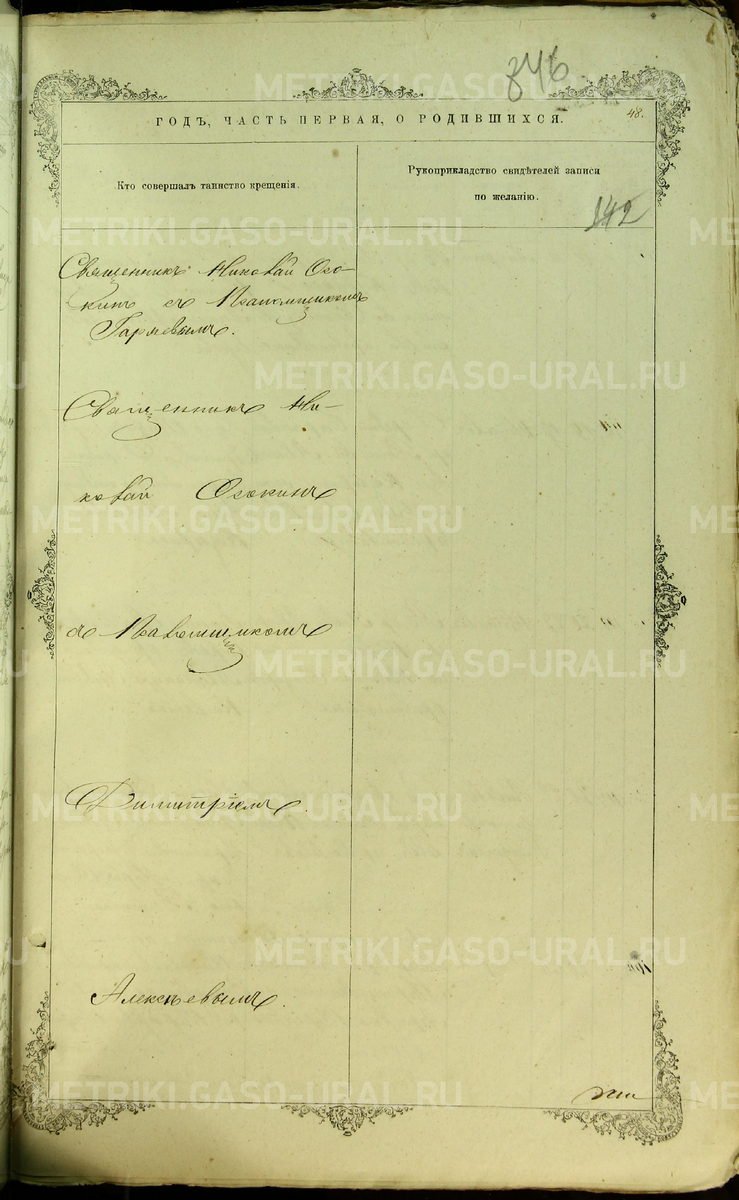 346
48.
ГОДЪ, ЧАСТЬ ПЕРВАЯ, О РОДИВШИХСЯ.
Кто совершалъ таинство крещенія.
Рукоприкладство свидѣтелей записи
по желанію.
142
Священникъ Николай Осо-
кинъ съ Псаломщикомъ
Гаряевымъ.
Священникъ Ни-
колай Осокинъ
съ Псаломщикомъ
Димитріемъ
Алексѣевымъ.
METRIKI.GASO-URAL.RU